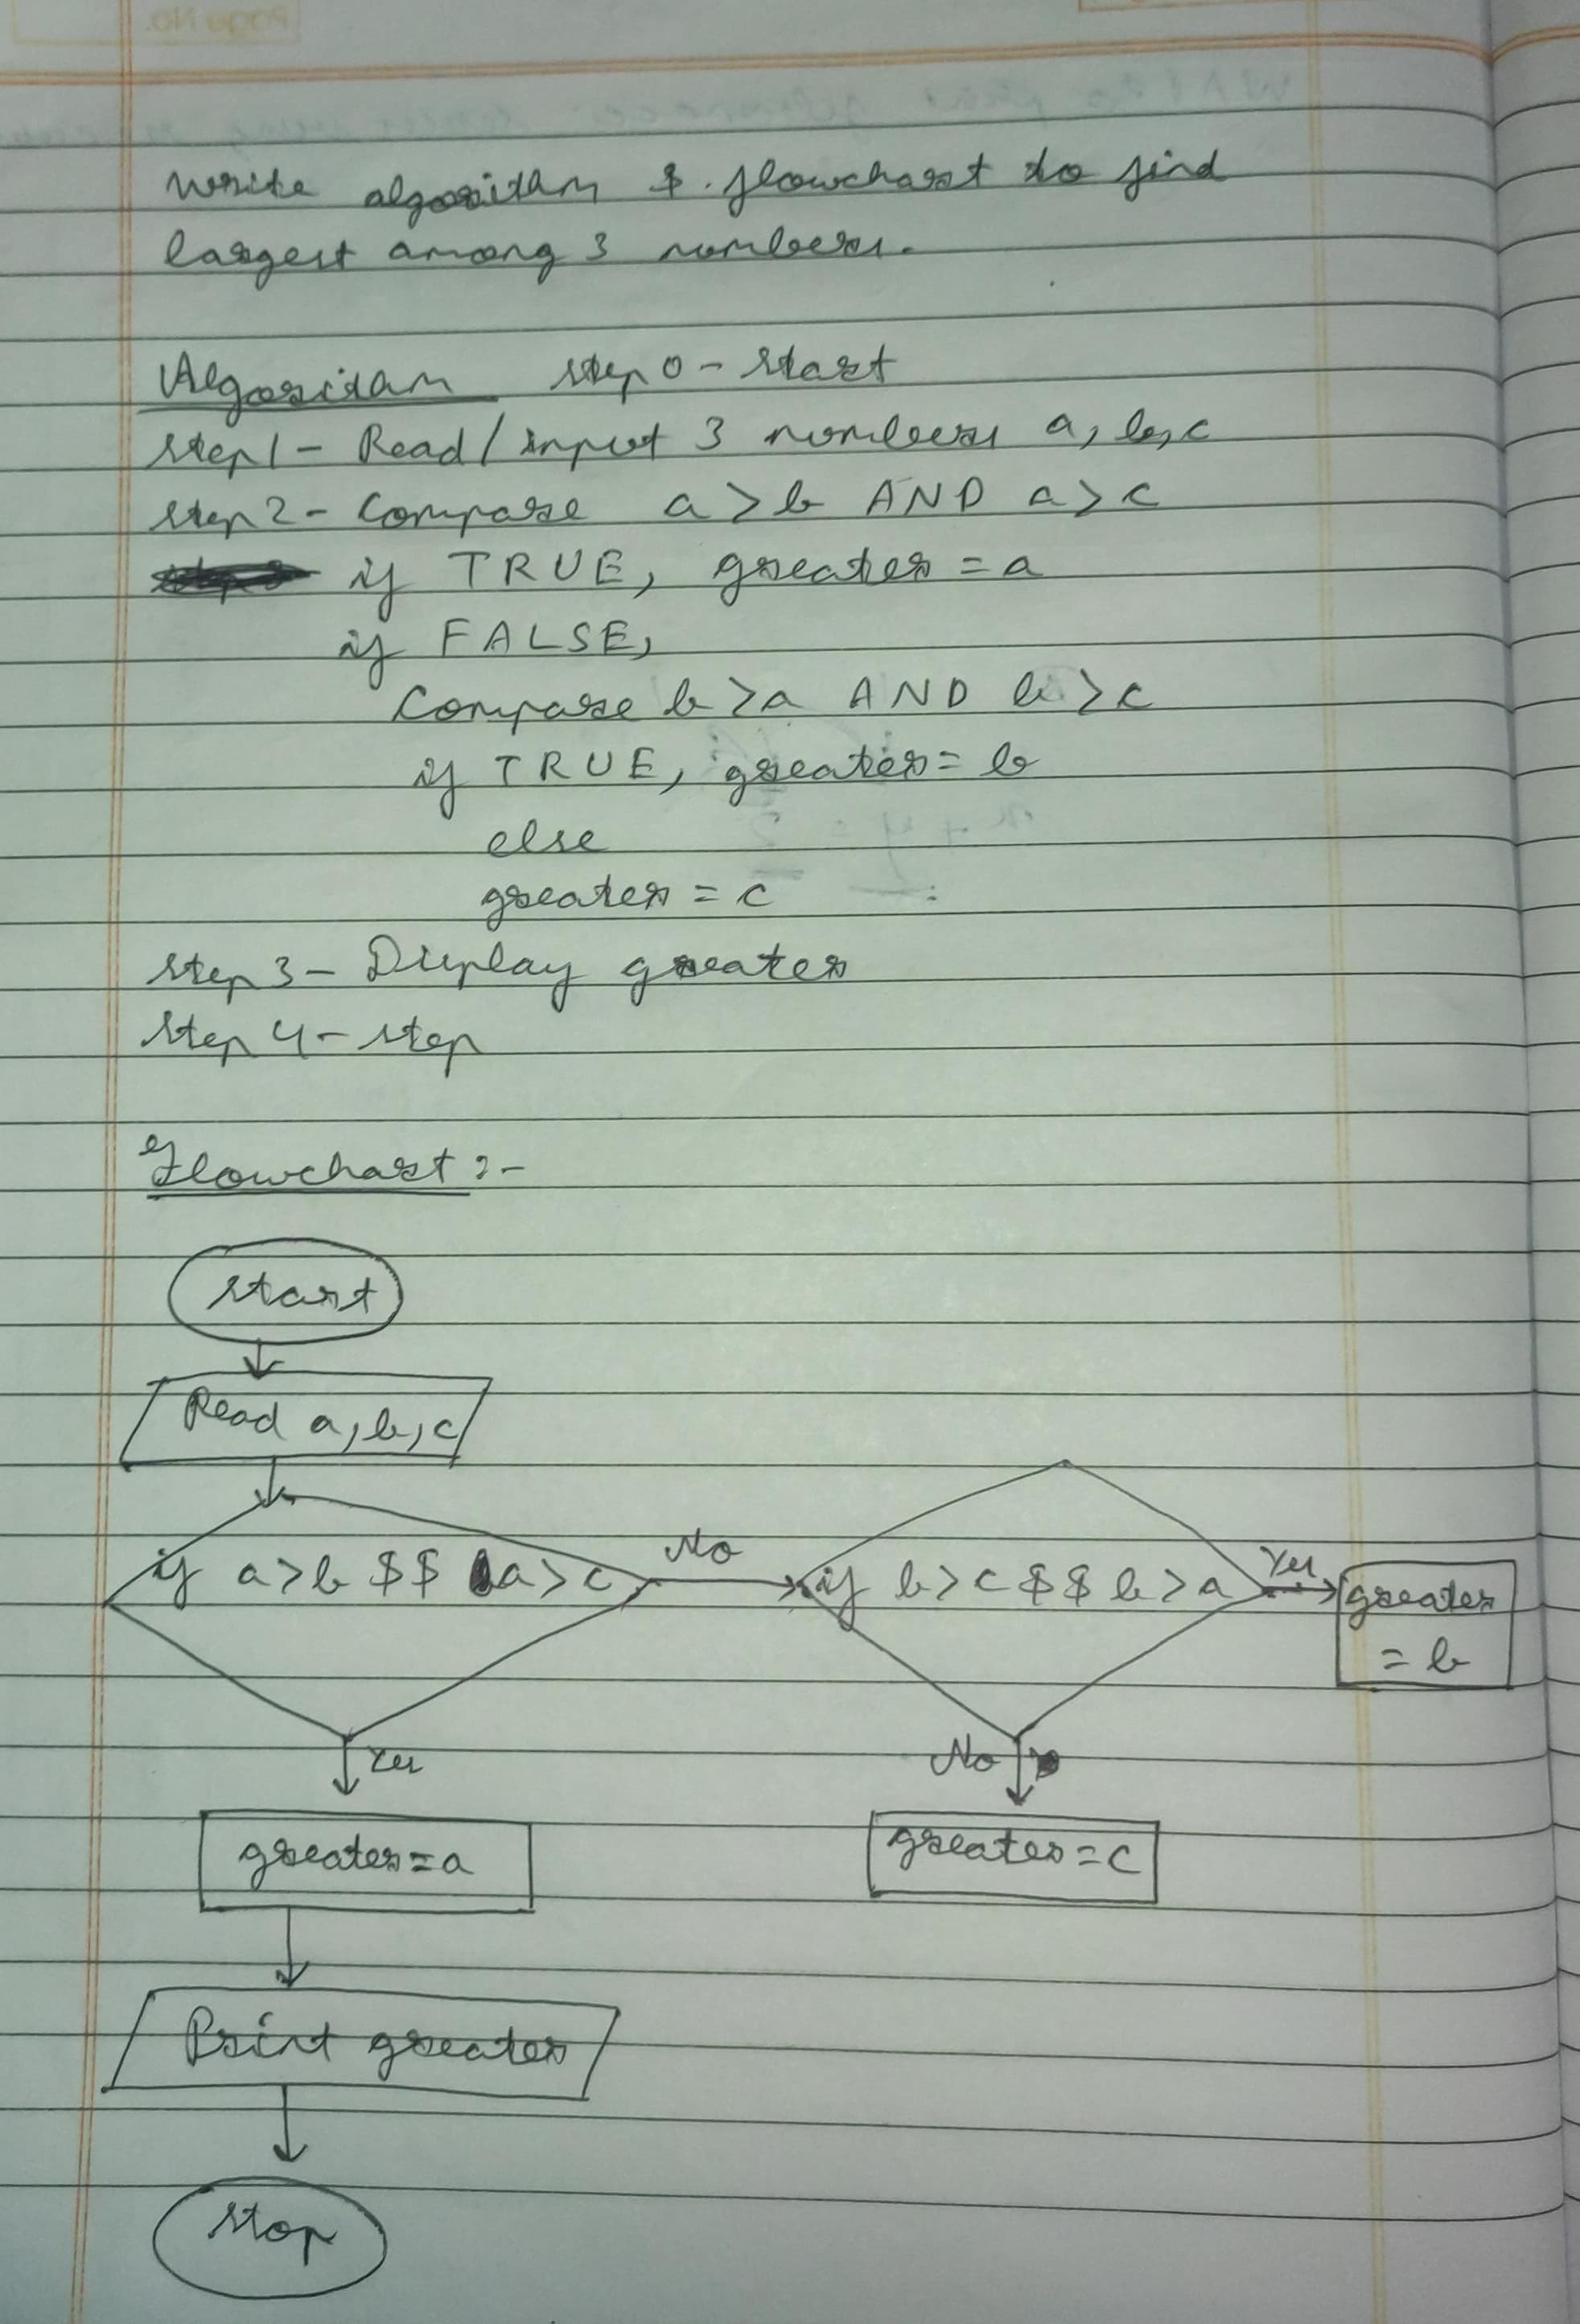 Write algorithm & flowchart to find
largest among 3 numbers.
Algorithm step 0 - Start
Step 1 - Read / input 3 numbers a, b, c
Step 2 - Compare a > b AND a > c
if TRUE, greater = a
if FALSE,
Compare b > a AND b > c
if TRUE, greater = b
else
greater = c
Step 3 - Display greater
Step 4 - step
Flowchart :-
Start
Read a, b, c
if a > b && a > c
No
if b > c && b > a
Yes
greater
= b
Yes
No
greater = a
greater = c
Print greater
Stop